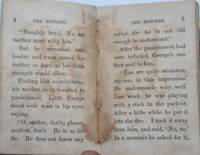 4 THE MURDER.
"Naughty boy! No, no,
mother must whip him."
But he screamed still
louder, and even struck his
sister as hard as his little
strength would allow.
Finding him so
mother, he was
punishment. Little George
stood with tears in his eyes,
saying,
"O, mother, don't; please,
mother, don't. He is so lit-
tle. He does not know any
THE MURDER. 5
for he is not old
enough to understand."
After the punishment had
been inflicted, George's mo-
ther said to him,
"You are quite mistaken,
my son, in this impression.
He understands very well.
Last week, he was playing
with a stick in the parlour.
After a little while he put it
into the fire. I took it away
from him, and said, 'No, no.'
In a moment he asked for it,